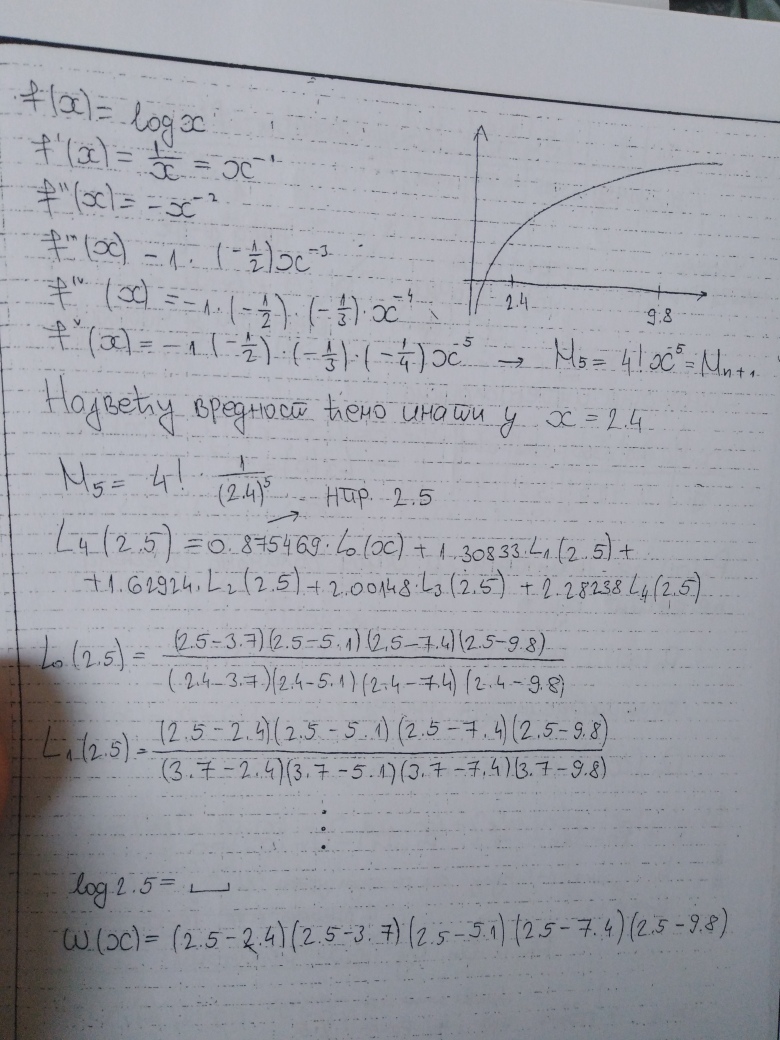 f(x) = log x
f'(x) = 1/x = x⁻¹
f''(x) = -x⁻²
f'''(x) - 1 · (-1/2) x⁻³
f^IV (x) = -1 · (-1/2) · (-1/3) · x⁻⁴
2.4 9.8
f^V (x) = -1 (-1/2) · (-1/3) · (-1/4) x⁻⁵ → M₅ = 4! x⁻⁵ = Mₙ₊₁
Највећу вредност ћемо имати у x = 2.4
M₅ = 4! · 1/(2.4)⁵ → нпр. 2.5
L₄(2.5) = 0.875469 · L₀(x) + 1.30833 · L₁(2.5) +
+ 1.62924 · L₂(2.5) + 2.00148 · L₃(2.5) + 2.28238 L₄(2.5)
L₀(2.5) = (2.5 - 3.7)(2.5 - 5.1)(2.5 - 7.4)(2.5 - 9.8) / (2.4 - 3.7)(2.4 - 5.1)(2.4 - 7.4)(2.4 - 9.8)
L₁(2.5) = (2.5 - 2.4)(2.5 - 5.1)(2.5 - 7.4)(2.5 - 9.8) / (3.7 - 2.4)(3.7 - 5.1)(3.7 - 7.4)(3.7 - 9.8)
⋮
log 2.5 =
ω(x) = (2.5 - 2.4)(2.5 - 3.7)(2.5 - 5.1)(2.5 - 7.4)(2.5 - 9.8)